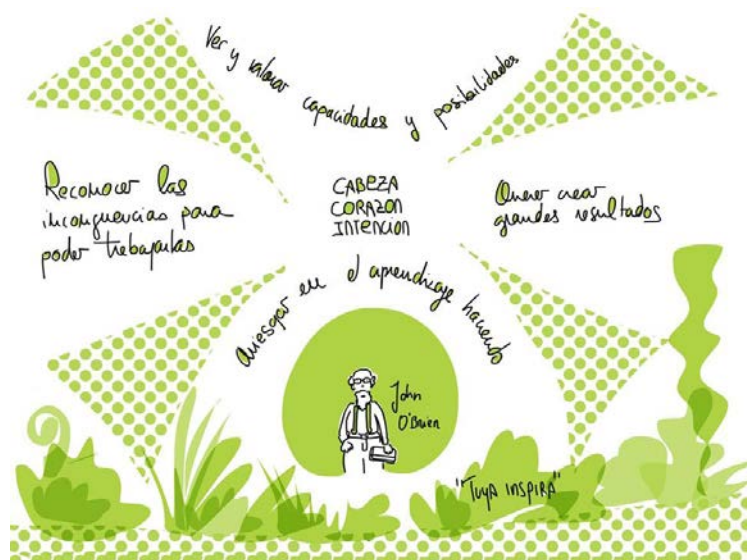 Ver y valorar capacidades y posibilidades
Reconocer las
incongruencias para
poder trabajarlas
CABEZA
CORAZON
INTENCION
Querer crear
grandes resultados
Arriesgar en el aprendizaje haciendo
John
O'Brien
"TUYA INSPIRA"